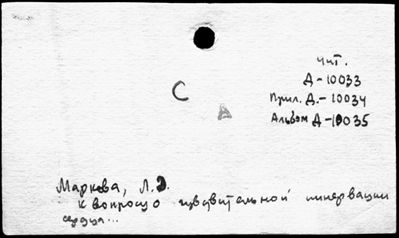 чит.
Д-10033
Прил. Д.-10034
Альбом Д-10035
С
Д
Маркова, Л. Э.
К вопросу о чувствительной иннервации
сердца...